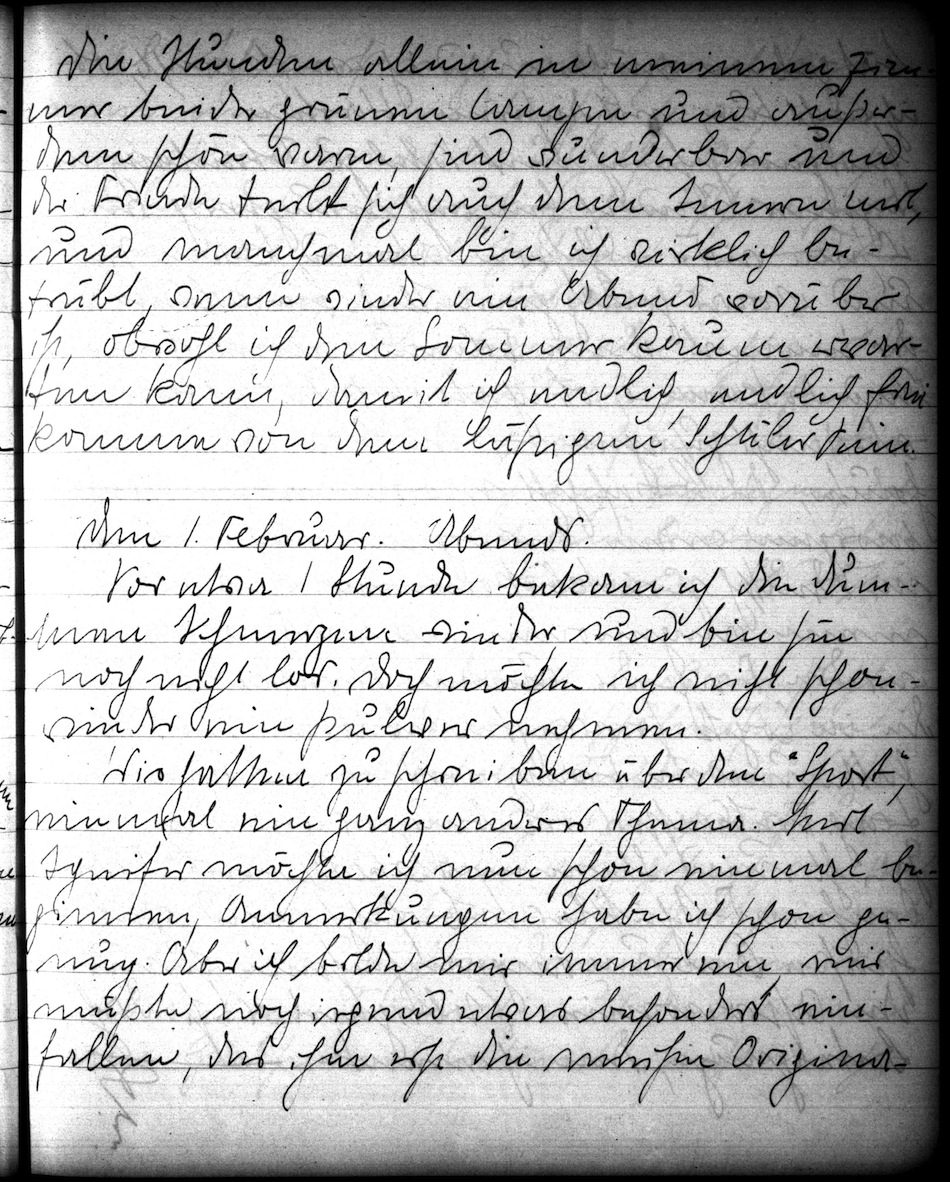 Die Stunden allein in meinem Zim-
mer bei der grünen Lampe und außer-
dem schön warm, sind wunderbar und
der Friede teilt sich auch dem Innern mit,
und manchmal bin ich wirklich be-
trübt, wenn wieder ein Abend vorüber
ist, obwohl ich den Sommer kaum erwar-
ten kann, damit ich endlich, endlich frei
komme von dem lästigen Schülersein.
Den 1. Februar. Abends.
Vor etwa 1 Stunde bekam ich die dum-
men Schmerzen wieder und bin sie
noch nicht los. Doch möchte ich nicht schon
wieder ein Pulver nehmen.
Wir hatten zu schreiben über den "Sport",
einmal ein ganz anderes Thema. Mit
möchte ich nun schon einmal be-
ginnen, Anmerkungen habe ich schon ge-
nug. Aber ich bilde mir immer ein, mir
müßte noch irgend etwas besonders ein-
fallen, das ihm erst die meisten Origina-